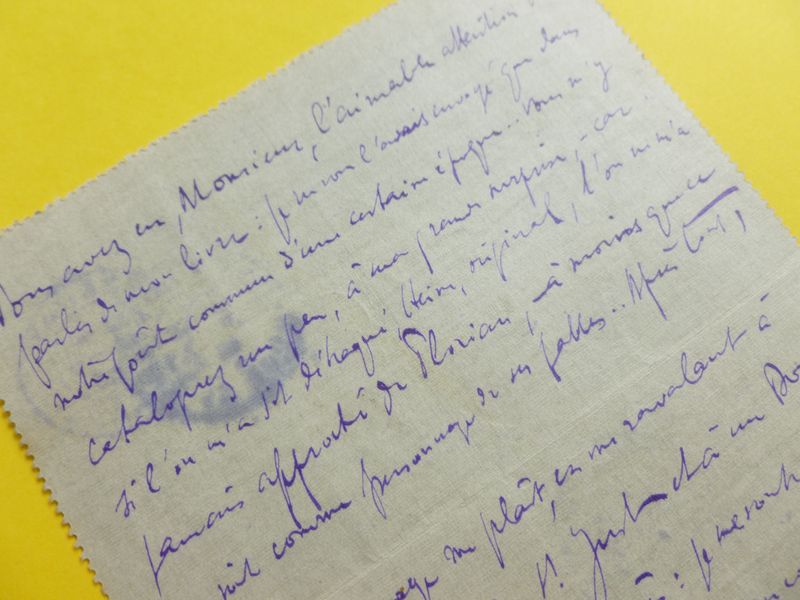 Vous avez eu, Monsieur, l'aimable attention
parler de mon livre : je ne l'avais envoyé que dans
notre goût commun d'une certaine époque... Vous m'y
cataloguez un peu, à ma grande surprise, - car
si l'on m'a dit détraqué, original, l'on ne m'a
jamais approché de Florian, - à moins que ce
soit comme personnage de ses fables... Après tout,
me plaît, en me ravalant à
St. Just et à un
: je me